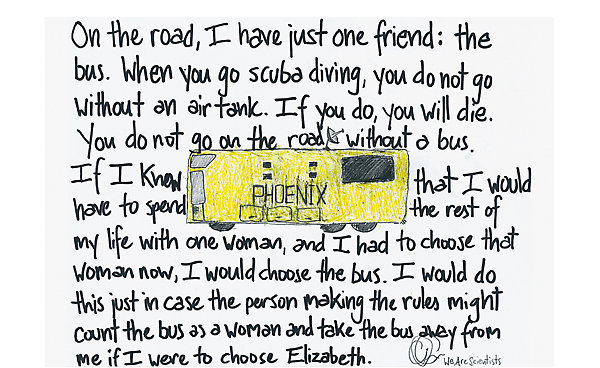 On the road, I have just one friend: the
bus. When you go scuba diving, you do not go
without an air tank. If you do, you will die.
You do not go on the road without a bus.
If I Know that I would
PHOENIX
have to spend the rest of
my life with one woman, and I had to choose that
woman now, I would choose the bus. I would do
this just in case the person making the rules might
count the bus as a woman and take the bus away from
me if I were to choose Elizabeth.
We Are Scientists